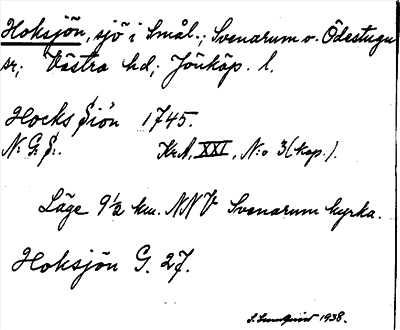 Hoksjön, sjö i Smål.; Svenarum o. Ödestugu
sr; Västra hd; Jönköp. l.
Hocks Siön 1745.
N: G: S:. KrA, XXI, N:o 3 (kop.).
Läge 9½ km. NNV Svenarum kyrka.
Hoksjön G. 27.
S. Lundqvist 1938.